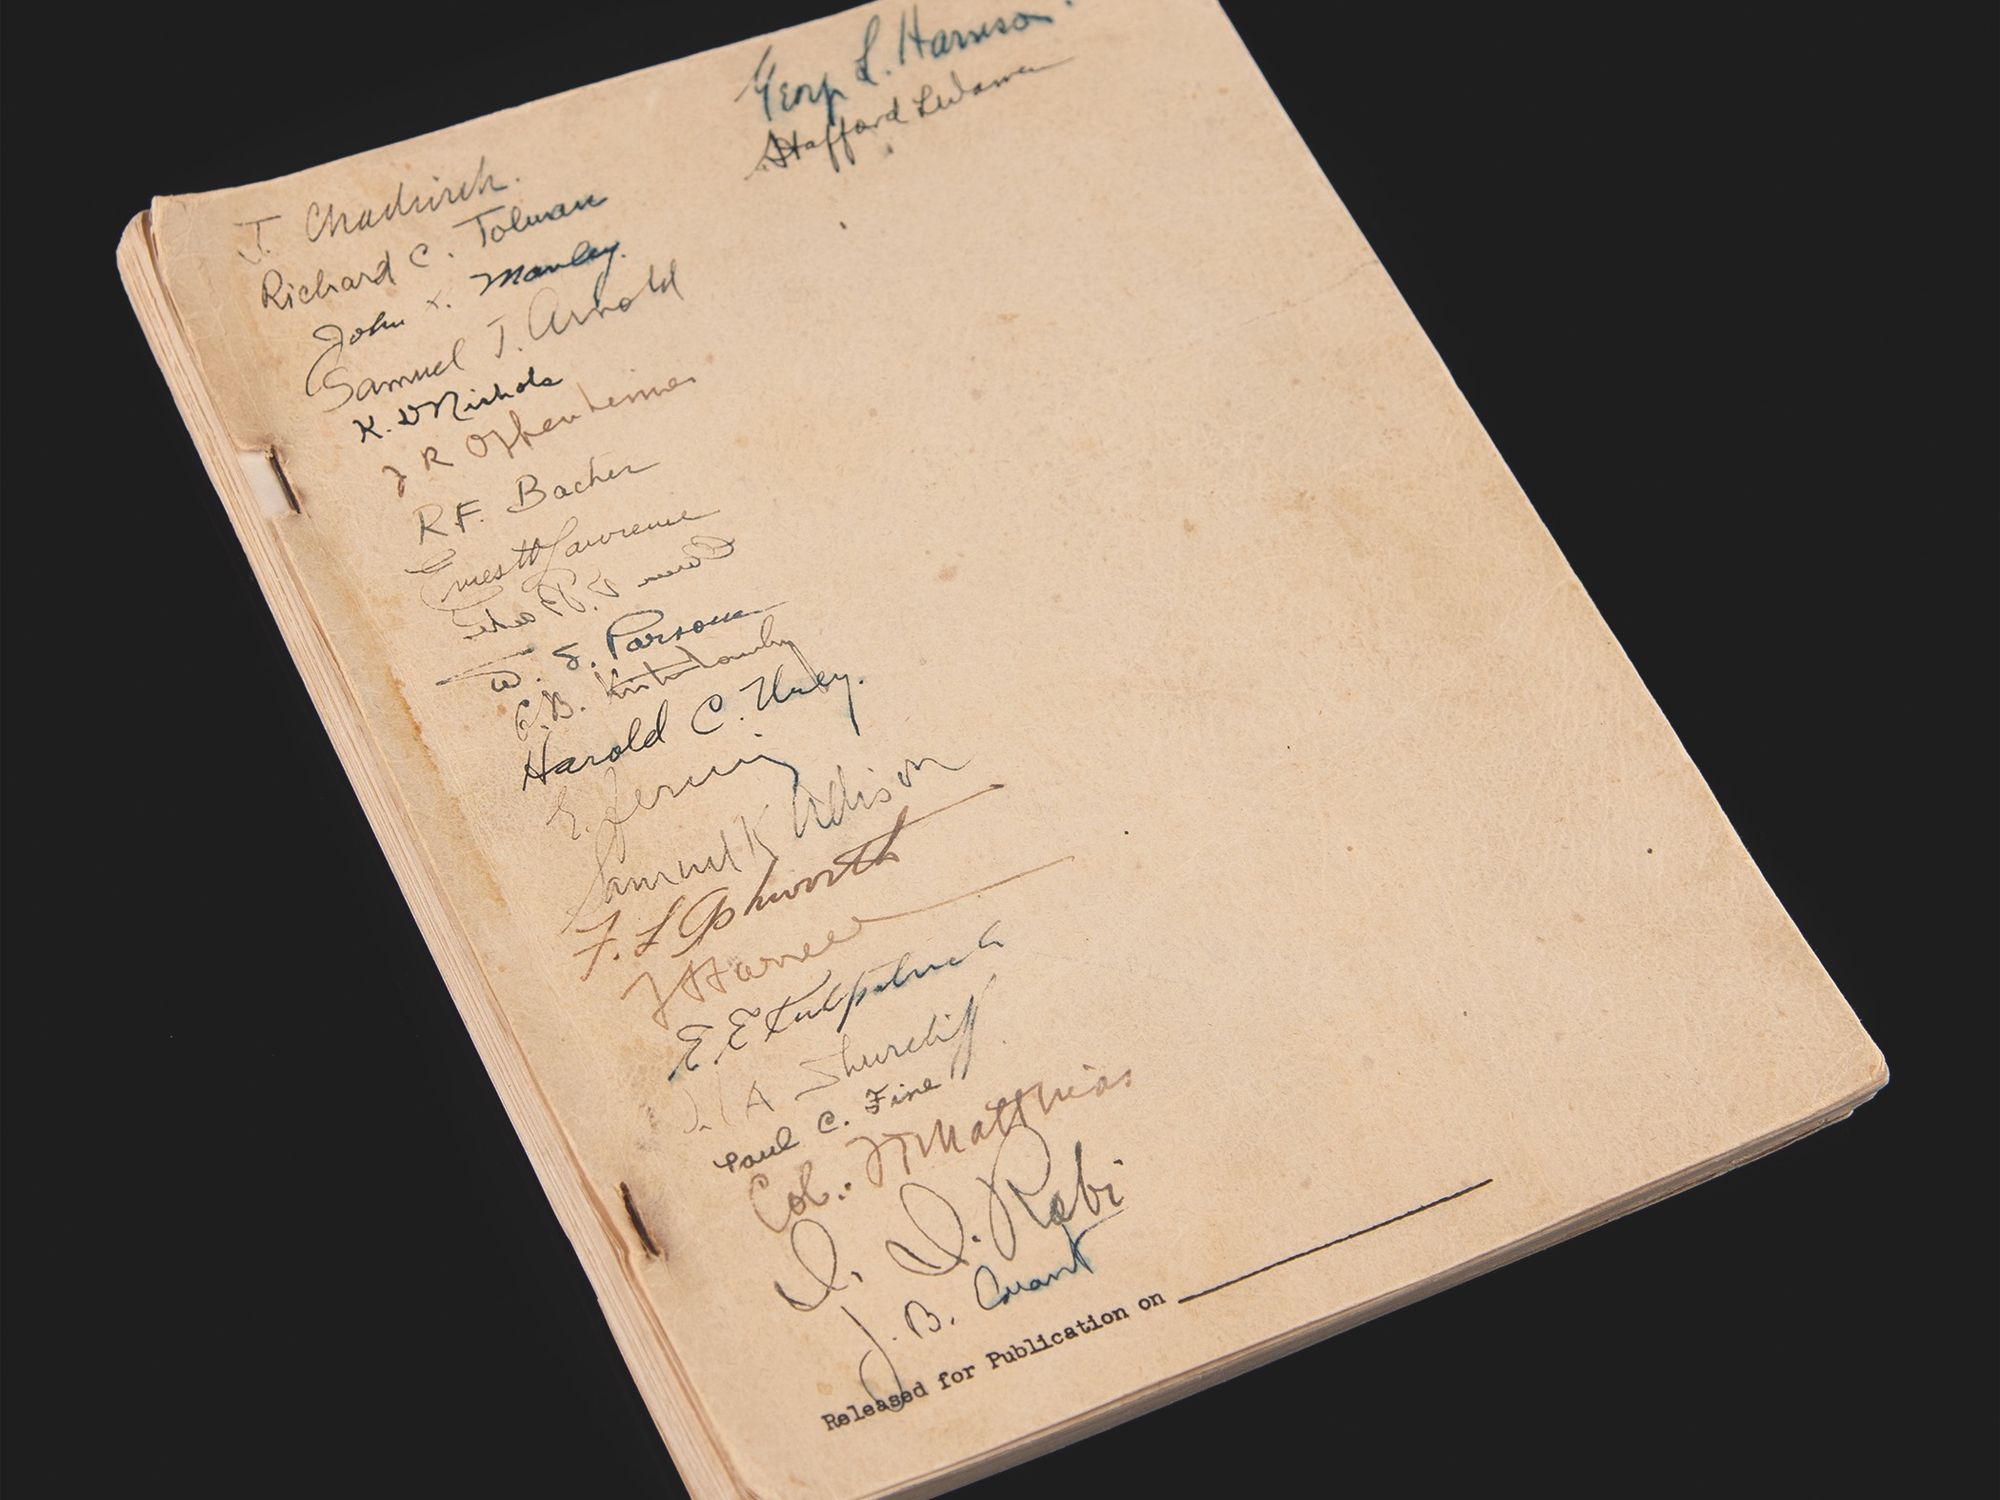 George L. Harrison
Stafford L Warren
J. Chadwick.
Richard C. Tolman
John H. Manley.
Samuel T. Arnold
K. D Nichols
J R Oppenheimer
R.F. Bacher
Ernest O Lawrence
W. S. Parsons
G.B. Kistiakowsky
Harold C. Urey.
E. Fermi
Samuel K Allison
F. L Ashworth
E. E Kirkpatrick
W A Shurcliff
Paul C. Fine
Col. F T Matthias
I. I. Rabi
J. B. Conant
Released for Publication on